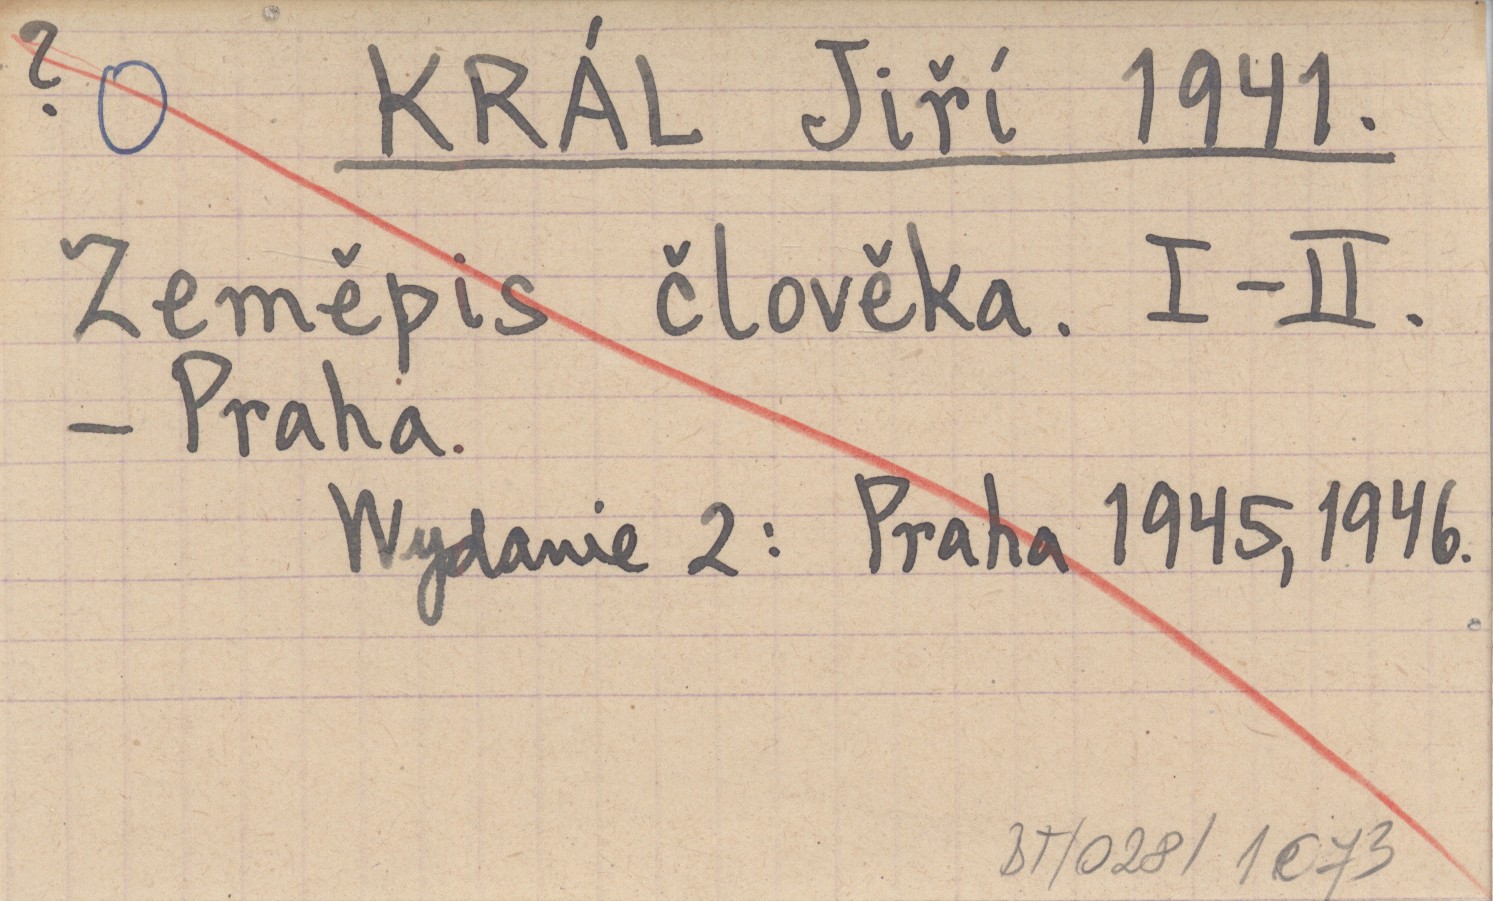 ? O KRÁL Jiří 1941.
Zeměpis člověka. I-II.
- Praha.
Wydanie 2: Praha 1945, 1946.
BT/028/